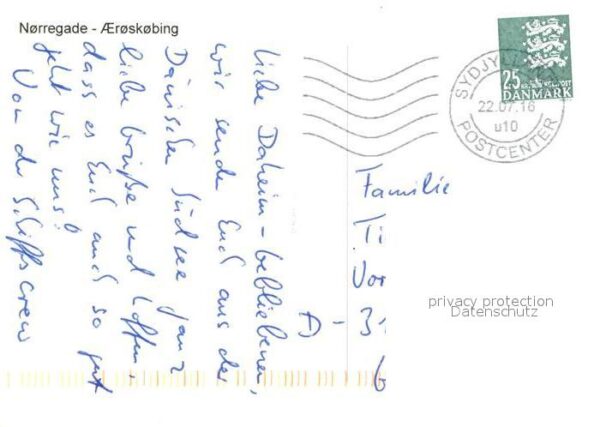 Nørregade - Ærøskøbing
Liebe Daheim-gebliebenen,
wir senden Euch aus der
Dänischen Südsee ganz
liebe Grüße und hoffen,
dass es Euch auch so gut
geht wie uns!
Von der Schiffscrew
SYDJYLLANDS
22.07.16
u10
POSTCENTER
25
DANMARK
Familie
Ti
Vor
A - 3
G
privacy protection
Datenschutz